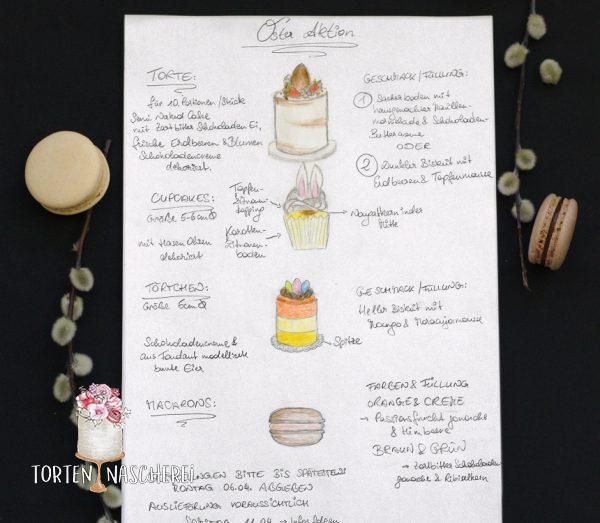 Oster Aktion
TORTE:
für 10 Portionen/Stücke
Semi Naked Cake
mit Zartbitter Schokoladen Ei,
frische Erdbeeren & Blumen
Schokoladencreme
dekoriert.
GESCHMACK/FÜLLUNG:
① Sacherboden mit
hausgemachter Marillen-
marmelade & Schokoladen-
Buttercreme
ODER
② Dunkler Biskuit mit
Erdbeeren & Topfenmousse
CUPCAKES:
Größe 5-6cm Ø
mit Hasen Ohren
dekoriert
Topfen-
Zitronen-
topping
Karotten-
Zitronen-
boden
Nougatkern in der
Mitte
TÖRTCHEN:
Größe 6cm Ø
Schokoladencreme &
aus Fondant modellierte
bunte Eier
Spitze
GESCHMACK/FÜLLUNG:
Heller Biskuit mit
Mango & Maracujamousse
MACARONS:
FARBEN & FÜLLUNG
ORANGE & CREME
→ Passionsfrucht ganache
& Himbeere
BRAUN & GRÜN
→ Zartbitter Schokoladen
ganache &
TORTEN NASCHEREI
BITTE BIS SPÄTESTENS
MONTAG 06.04. ABGEBEN
AUSLIEFERUNG VORAUSSICHTLICH
SAMSTAG 11.04. →